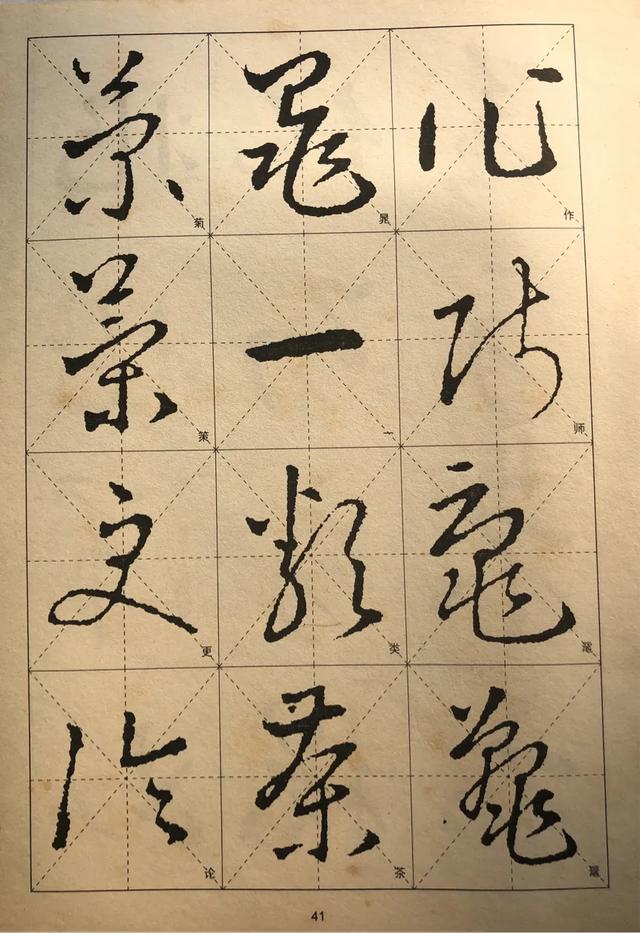 作师鼋鼍
晁一类茶
菊策更论
41